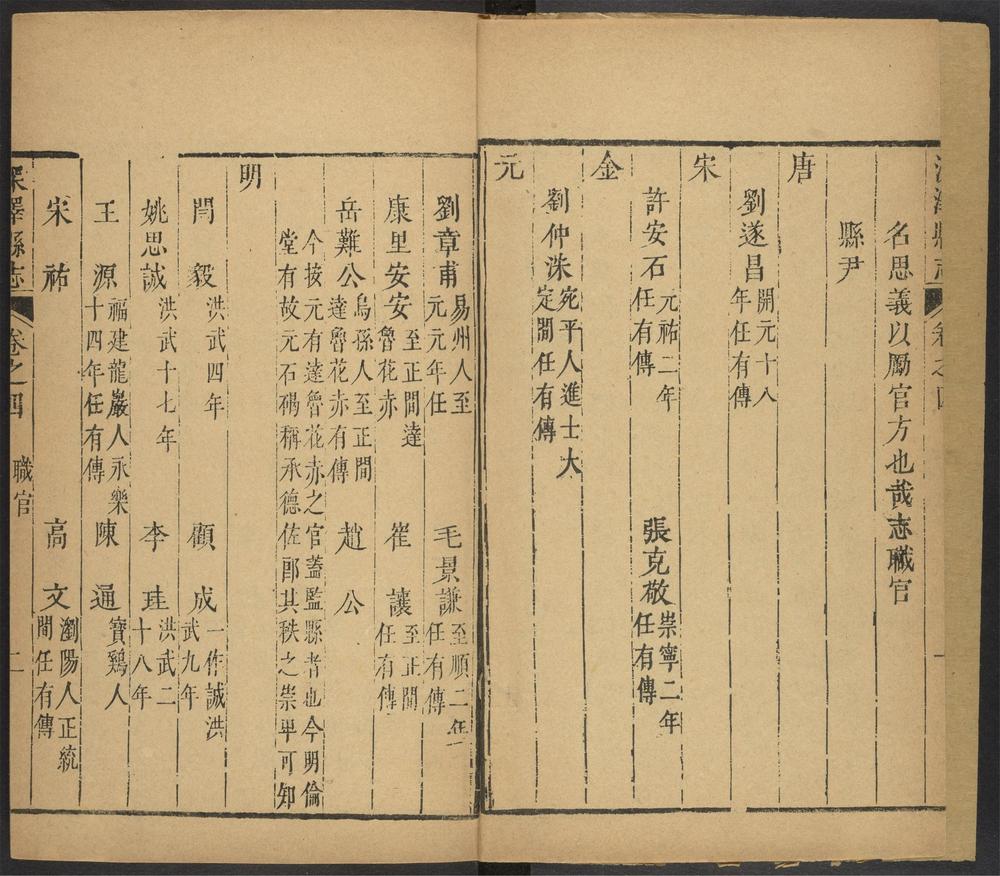 深澤縣志
卷之四
一
名思義以勵官方也哉志職官
縣尹
唐
劉遂昌開元十八
年任有傳
宋
許安石元祐二年
任有傳
張克敬崇寧二年
任有傳
金
劉仲洙宛平人進士大
定間任有傳
元
劉章甫易州人至
元元年任
毛景謙至順二年
任有傳
康里安安至正間達
魯花赤
崔讓至正間
任有傳
岳難公烏孫人至正間
達魯花赤有傳
趙公
今按元有達魯花赤之官蓋監縣者也今明倫
堂有故元石碣稱承德佐郎其秩之崇卑可知
明
閆毅洪武四年
顧成一作誠洪
武九年
姚思誠洪武十七年
李珪洪武二
十八年
王源福建龍巖人永樂
十四年任有傳
陳通寶鷄人
宋祐
高文瀏陽人正統
間任有傳
深澤縣志
卷之四
職官
二